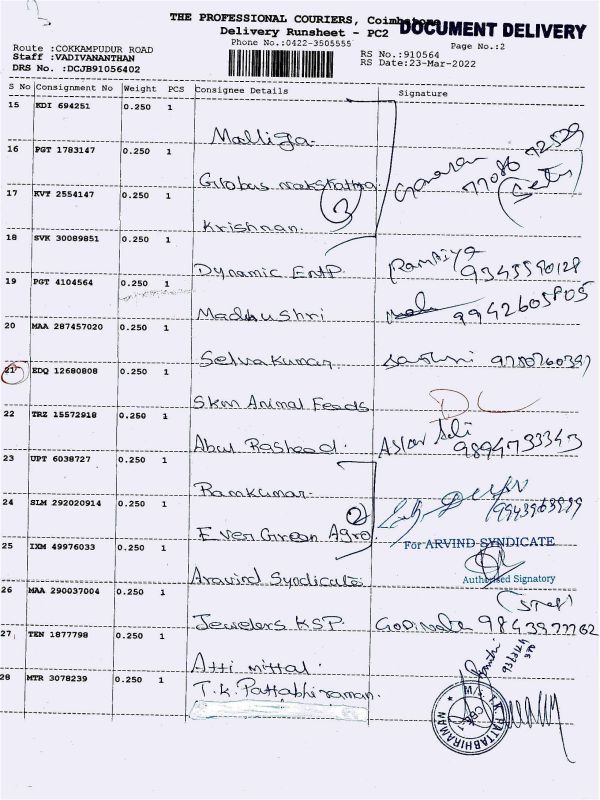 THE PROFESSIONAL COURIERS, Coimbatore
DOCUMENT DELIVERY
Delivery Runsheet - PC2
Phone No.:0422-3505555
Page No.:2
Route :COKKAMPUDUR ROAD
RS No.:910564
Staff :VADIVANANTHAN
RS Date:23-Mar-2022
DRS No. :DCJB91056402
S No Consignment No Weight PCS Consignee Details Signature
15 KDI 694251 0.250 1
Malliga
16 PGT 1783147 0.250 1
Globus nakshatra
17 KVT 2554147 0.250 1
3
Krishnan
18 SVK 30089851 0.250 1
Dynamic EntP
19 PGT 4104564 0.250 1
Madhu Shri
20 MAA 287457020 0.250 1
Selvakumar
21 EDQ 12680808 0.250 1
Skm Animal Feeds
22 TRZ 15572918 0.250 1
Abul Rasheed
23 UPT 6038727 0.250 1
Ramkumar
24 SLM 292020914 0.250 1
2
Ever Green Agro
25 IXM 49976033 0.250 1
For ARVIND SYNDICATE
Aravind Syndicate
Authorised Signatory
26 MAA 290037004 0.250 1
Jewelers KSP
27 TEN 1877798 0.250 1
Atti mittal
28 MTR 3078239 0.250 1
T.K. Pattabhiraman
T.K. PATTABHIRAMAN